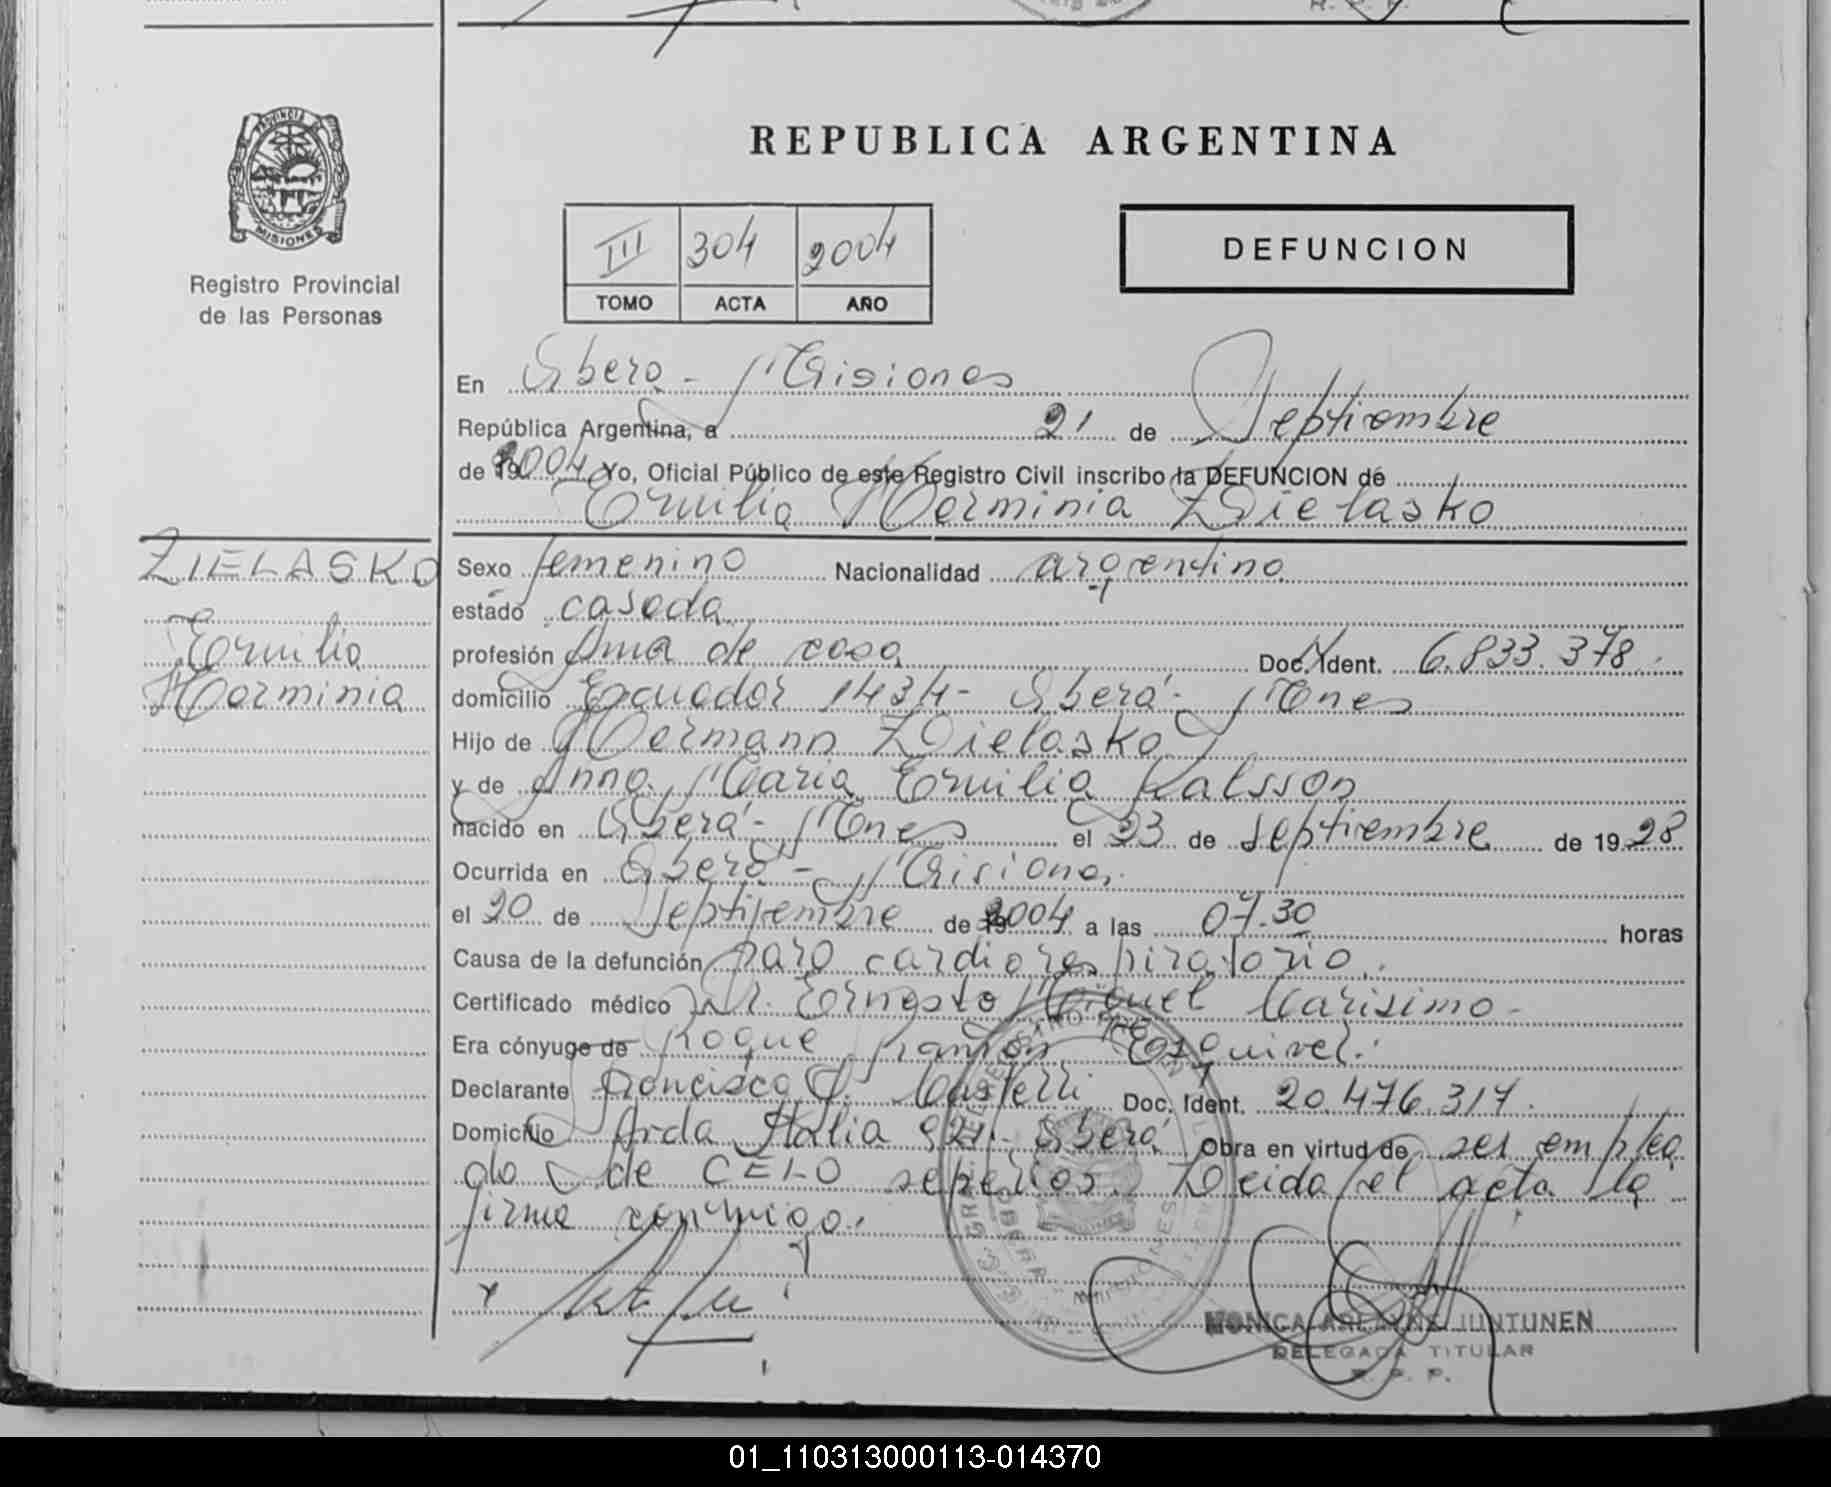 REPUBLICA ARGENTINA
PROVINCIA DE
MISIONES
Registro Provincial
de las Personas
III 304 2004
TOMO ACTA AÑO
DEFUNCION
En Oberá - Misiones
República Argentina, a 21 de Septiembre
de 2004 Yo, Oficial Público de este Registro Civil inscribo la DEFUNCION de
Emilia Herminia Zielasko
ZIELASKO
Emilia
Herminia
Sexo femenino Nacionalidad argentina
estado casada
profesión Ama de casa Doc. Ident. 6.833.378
domicilio Ecuador 1434 - Oberá - Mnes
Hijo de Hermann Zielasko
y de Anna Maria Emilia Kalsson
nacido en Oberá - Mnes el 23 de Septiembre de 1928
Ocurrida en Oberá - Misiones
el 20 de Septiembre de 2004 a las 07.30 horas
Causa de la defunción paro cardiorespiratorio.
Certificado médico Dr. Ernesto Miguel Carisimo -
Era cónyuge de Roque Ramón Esquivel.
Declarante Francisco Castelli Doc. Ident. 20.476.317.
Domicilio Avda Italia 921 - Oberá Obra en virtud de ser emplea
do de CELO sepelios. Leida el acta la
firma conmigo.
MONICA JUNTUNEN
DELEGADA TITULAR
R. P. P.
01_110313000113-014370